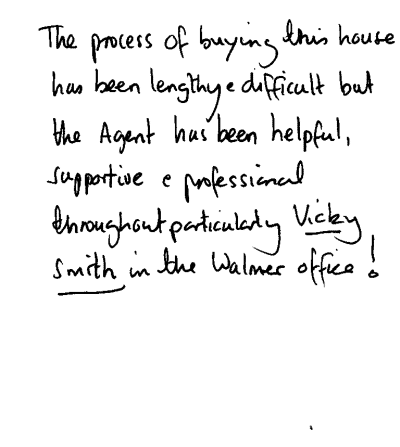 The process of buying this house
has been lengthy e difficult but
the Agent has been helpful,
supportive e professional
throughout particularly Vicky
Smith in the Walmer office!